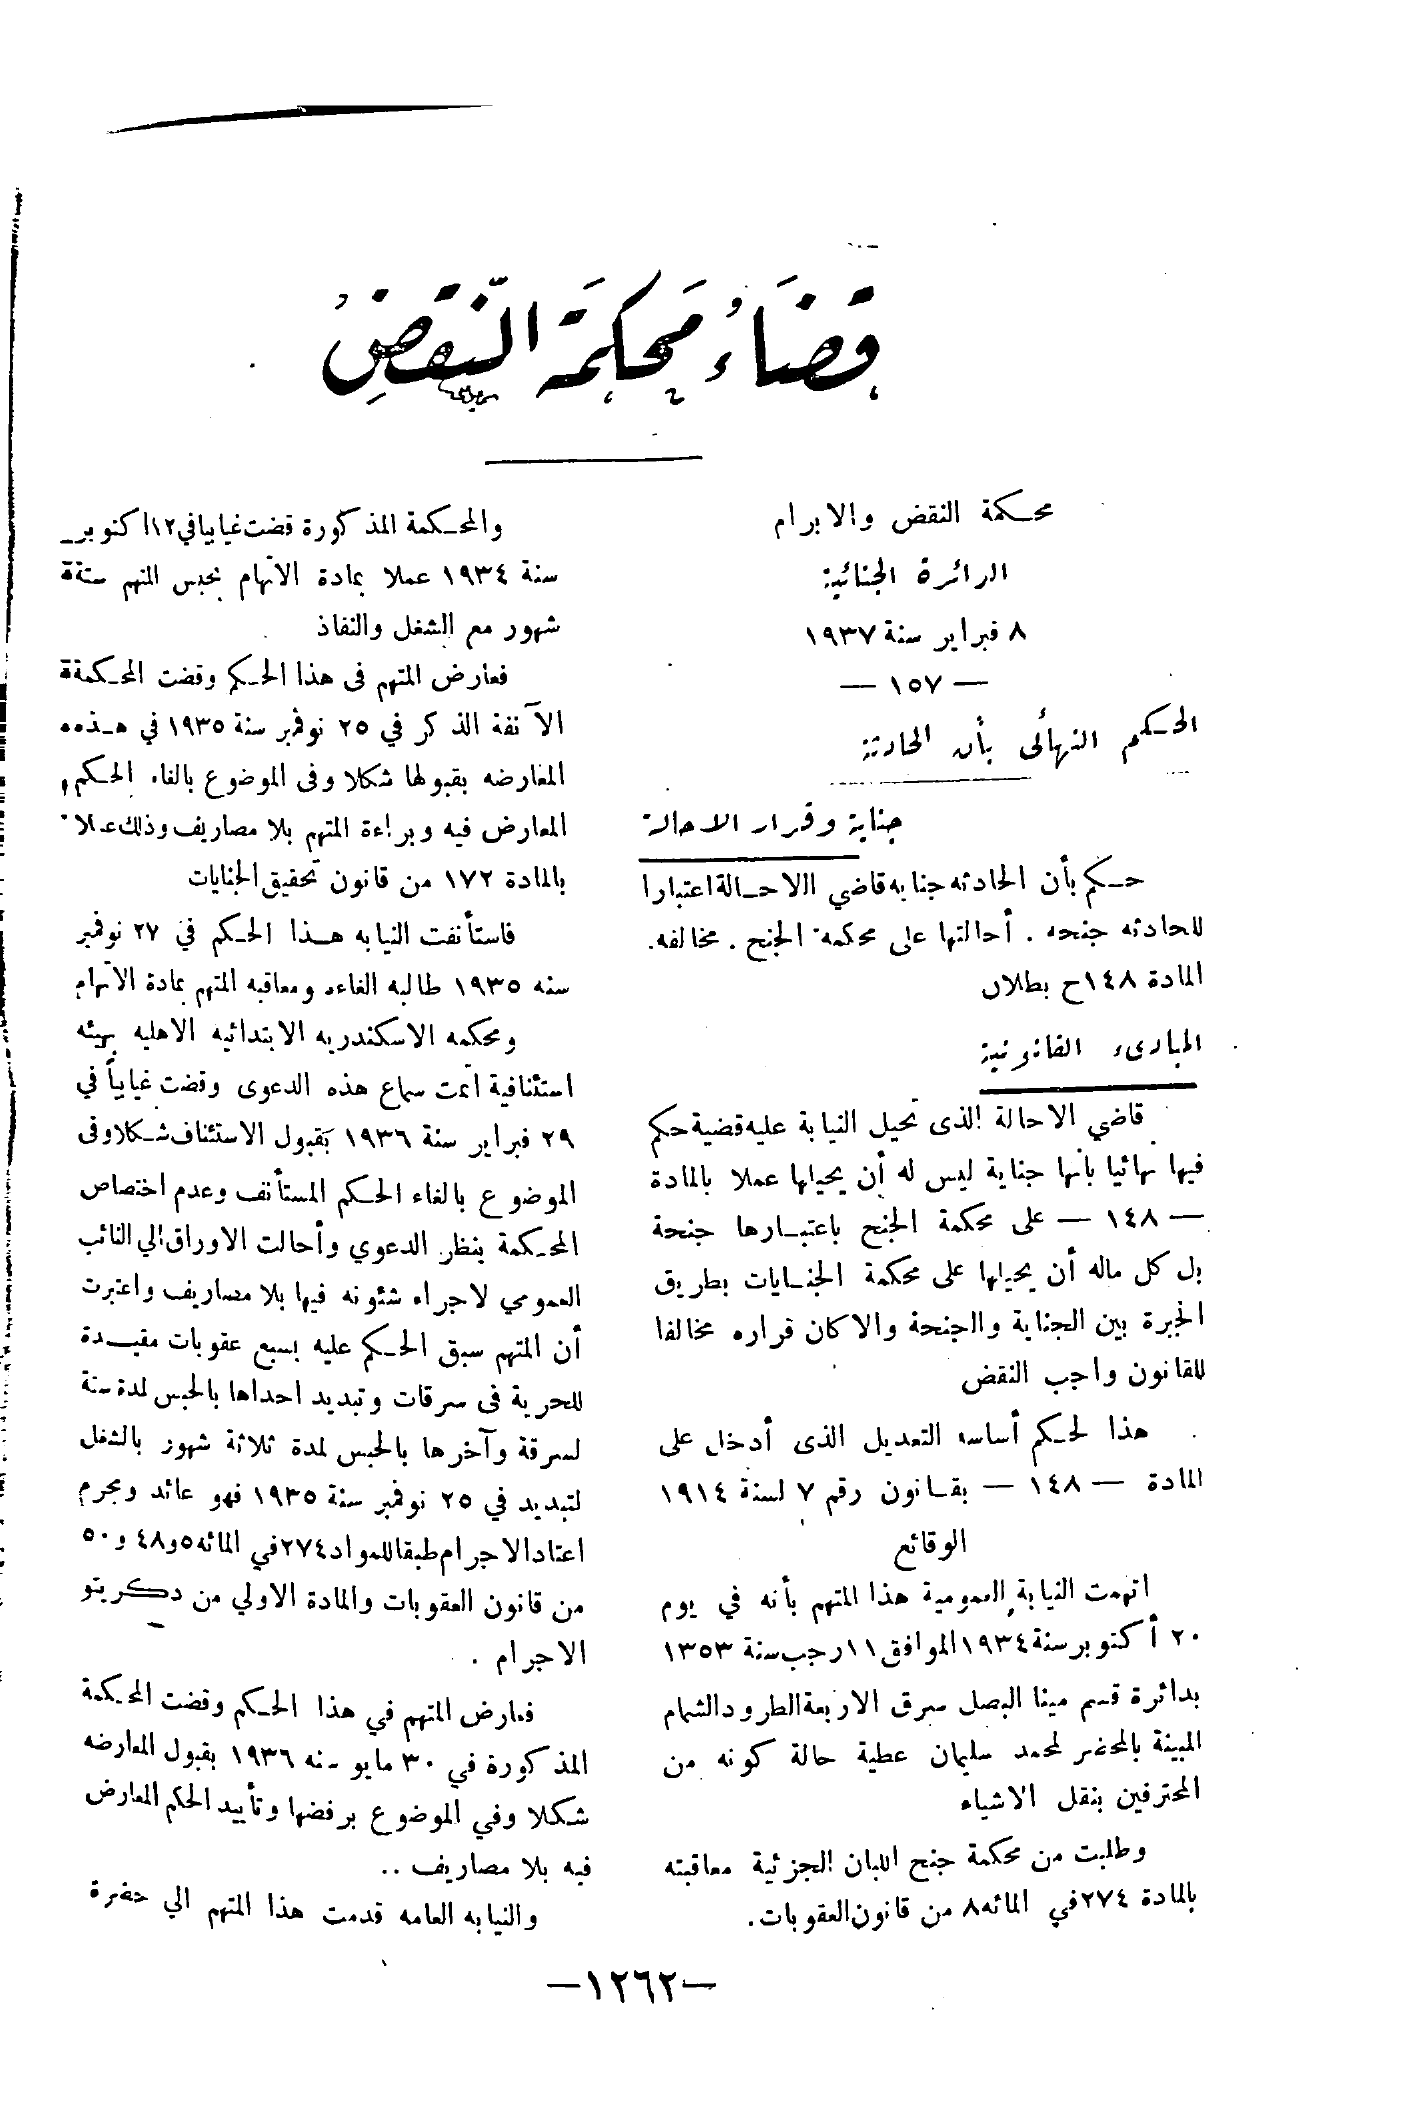 قضاء محكمة النقض
محكمة النقض والابرام
الدائرة الجنائية
٨ فبراير سنة ١٩٣٧
— ١٥٧ —
الحكم النهائى بأن الحادثة
جناية وقرار الاحالة
حكم بأن الحادثه جنايه قاضي الاحالة اعتبارا
للحادثه جنحه . أحالتها على محكمة الجنح . مخالفه .
المادة ١٤٨ ح بطلان
المبادىء القانونية
قاضي الاحالة الذى تحيل النيابة عليه قضية حكم
فيها نهائيا بأنها جناية ليس له أن يحيلها عملا بالمادة
— ١٤٨ — على محكمة الجنح باعتبارها جنحة
بل كل ماله أن يحيلها على محكمة الجنايات بطريق
الخيرة بين الجناية والجنحة والا كان قراره مخالفا
للقانون واجب النقض
هذا لحكم أساسه التعديل الذى أدخل على
المادة — ١٤٨ — بقانون رقم ٧ لسنة ١٩١٤
الوقائع
اتهمت النيابة العمومية هذا المتهم بأنه في يوم
٢٠ أكتوبر سنة ١٩٣٤ الموافق ١١ رجب سنة ١٣٥٣
بدائرة قسم مينا البصل سرق الاربعة الطرود الشمام
المبينة بالمحضر لمحمد سليمان عطية حالة كونه من
المحترفين بنقل الاشياء
وطلبت من محكمة جنح اللبان الجزئية معاقبته
بالمادة ٢٧٤ في المائه ٨ من قانون العقوبات .
والمحكمة المذكورة قضت غيابيا في ١٢ اكتوبر
سنة ١٩٣٤ عملا بمادة الاتهام بحبس المتهم ستة
شهور مع الشغل والنفاذ
فعارض المتهم فى هذا الحكم وقضت المحكمة
الآنفة الذكر في ٢٥ نوفمبر سنة ١٩٣٥ في هذه
المعارضه بقبولها شكلا وفى الموضوع بالغاء الحكم
المعارض فيه وبراءة المتهم بلا مصاريف وذلك عملا
بالمادة ١٧٢ من قانون تحقيق الجنايات
فاستأنفت النيابه هذا الحكم في ٢٧ نوفمبر
سنه ١٩٣٥ طالبه الغاءه ومعاقبه المتهم بمادة الاتهام
ومحكمه الاسكندريه الابتدائيه الاهليه بهيئه
استئنافية أتمت سماع هذه الدعوى وقضت غيابياً في
٢٩ فبراير سنة ١٩٣٦ بقبول الاستئناف شكلا وفى
الموضوع بالغاء الحكم المستأنف وعدم اختصاص
المحكمة بنظر الدعوي وأحالت الاوراق الي النائب
العمومي لاجراء شئونه فيها بلا مصاريف واعتبرت
أن المتهم سبق الحكم عليه بسبع عقوبات مقيدة
للحرية فى سرقات وتبديد احداها بالحبس لمدة سنة
لسرقة وآخرها بالحبس لمدة ثلاثة شهور بالشغل
لتبديد في ٢٥ نوفمبر سنة ١٩٣٥ فهو عائد ومجرم
اعتاد الاجرام طبقا للمواد ٢٧٤ في المائه ٥ و٤٨ و٥٠
من قانون العقوبات والمادة الاولي من دكريتو
الاجرام .
فعارض المتهم في هذا الحكم وقضت المحكمة
المذكورة في ٣٠ مايو سنه ١٩٣٦ بقبول المعارضه
شكلا وفي الموضوع برفضها وتأييد الحكم المعارض
فيه بلا مصاريف ..
والنيابه العامه قدمت هذا المتهم الي حضرة
— ١٢٦٢ —